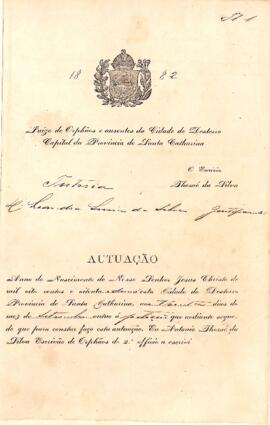 18 82
Juizo de Orphãos e ausentes da Cidade do Desterro
Capital da Provincia de Santa Catharina
O Escrivão
Tutoria Thomé da Silva
da Silva
AUTUAÇÃO
Anno do Nascimento de Nosso Senhor Jesus Christo de
mil oito centos e oitenta e dous nesta Cidade do Desterro
Provincia de Santa Catharina, aos dias do
mez de Setembro autuo a petição que adiante segue.
do que para constar faço esta autuação. Eu Antonio Thomé da
Silva Escrivão de Orphãos do 2.º officio o escrivi